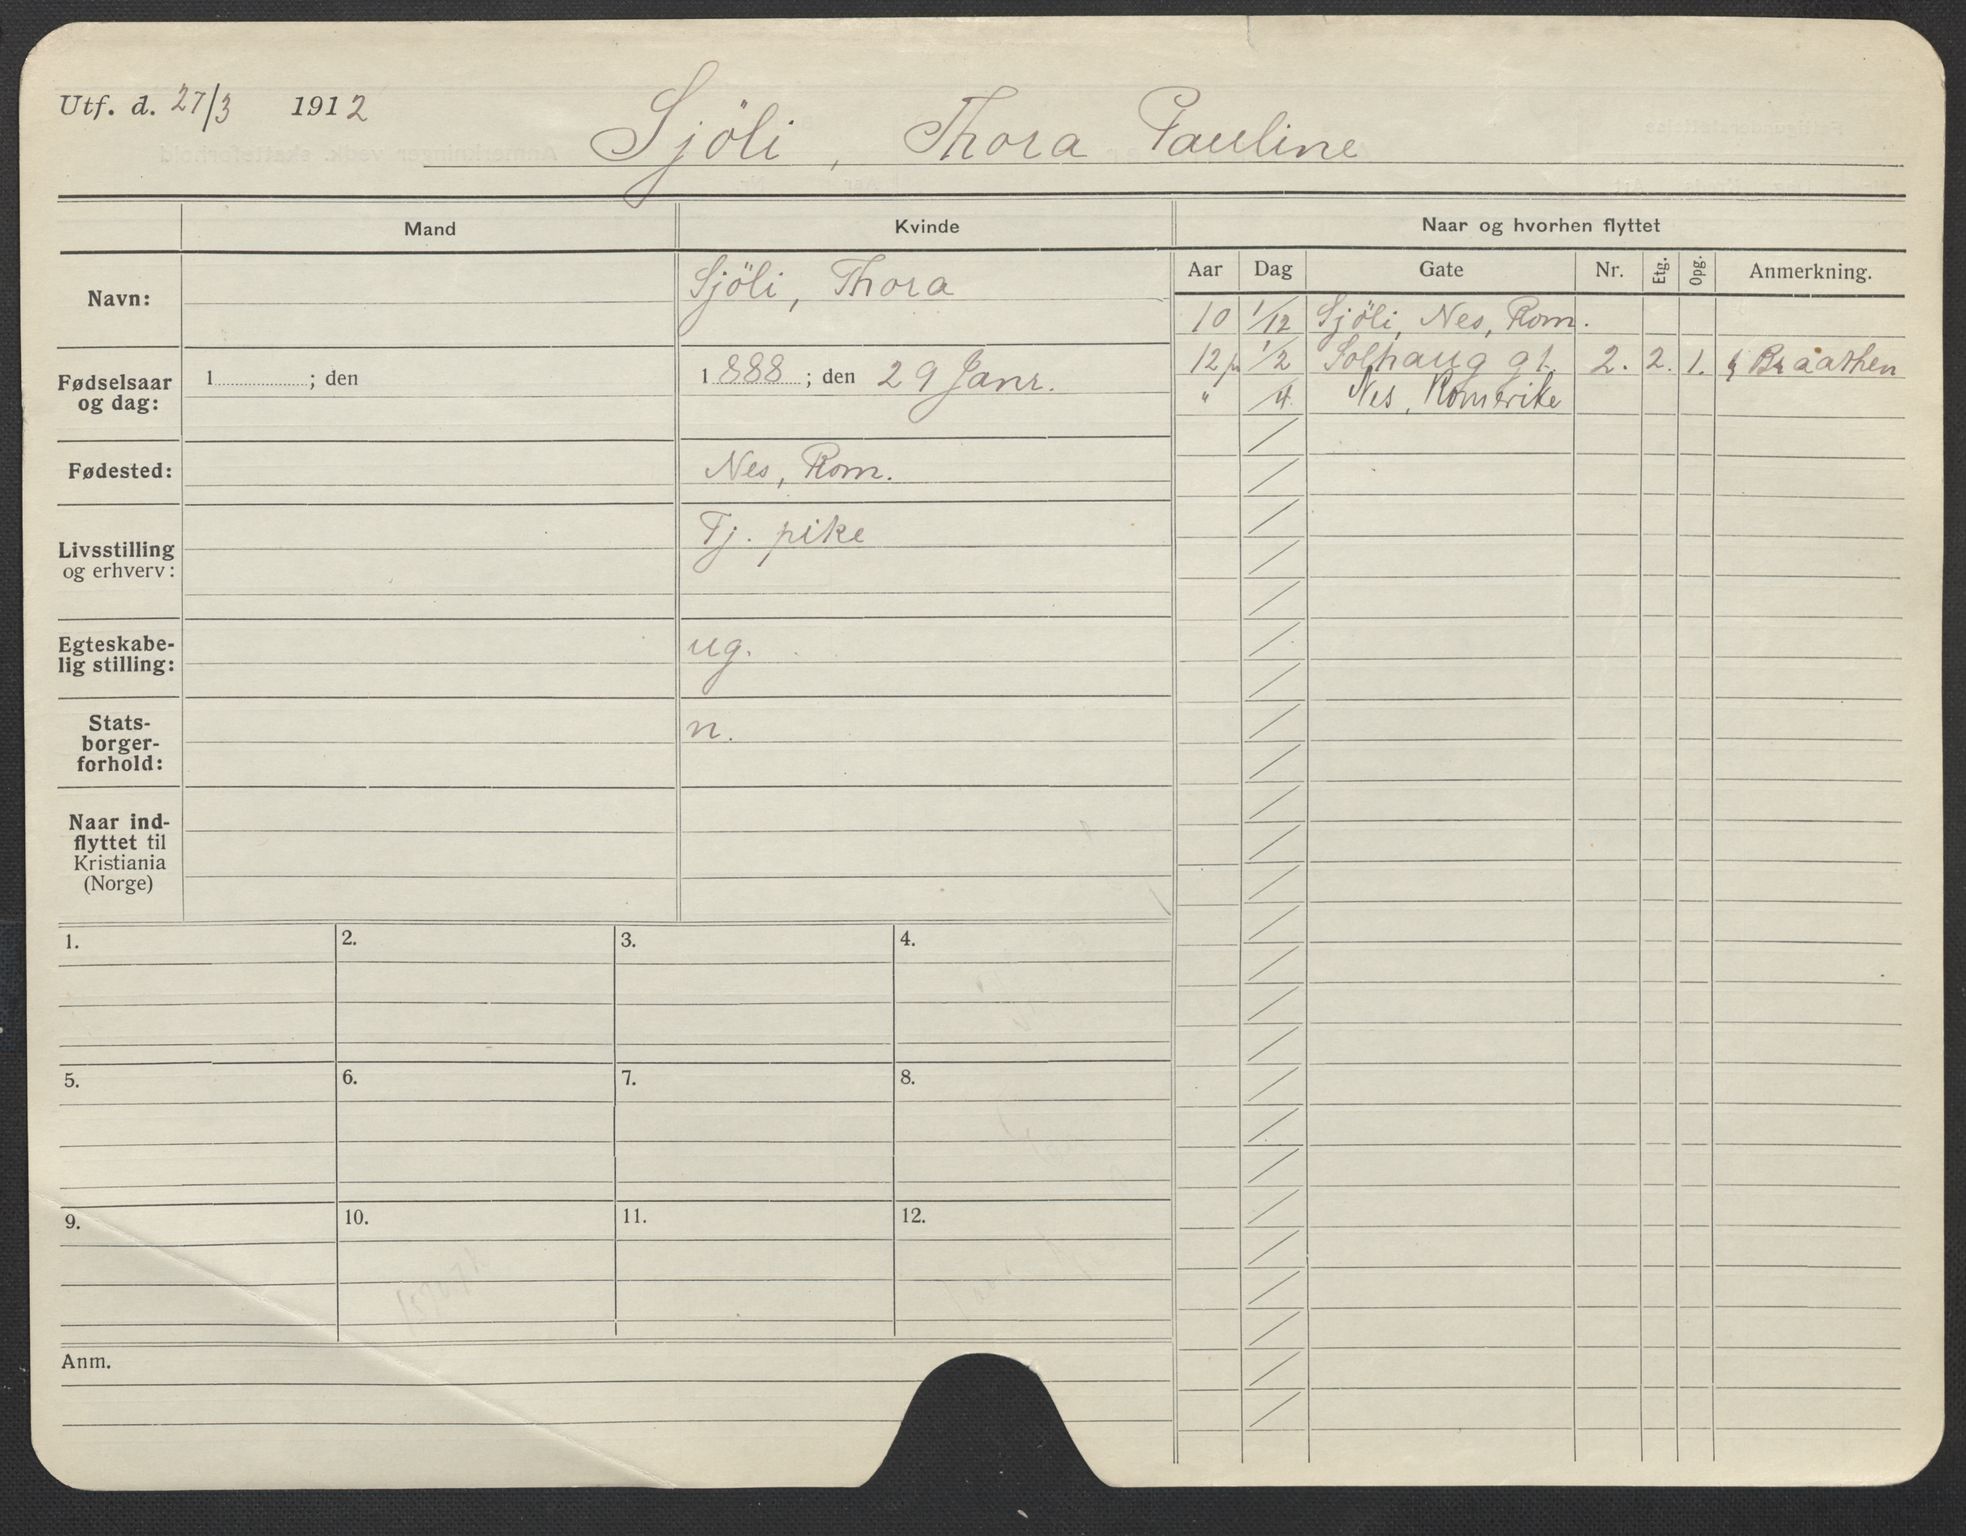 Utf. d. 27/3 1912
Sjöli, Thora Pauline
Mand
Kvinde
Naar og hvorhen flyttet
Aar Dag Gate Nr. Etg. Opg. Anmerkning.
Navn:
Sjöli, Thora
Fødselsaar og dag:
1 ; den
1888 ; den 29 Janr.
Fødested:
Nes, Rom.
Livsstilling
og erhverv:
Tj. pike
Egteskabe-
lig stilling:
ug.
Stats-
borger-
forhold:
n.
Naar ind-
flyttet til
Kristiania
(Norge)
10 1/12 Sjöli, Nes, Rom.
12 1/2 Solhaug gt. 2. 2. 1. Braathen
" /4 Nes, Romerike
1. 2. 3. 4.
5. 6. 7. 8.
9. 10. 11. 12.
Anm.